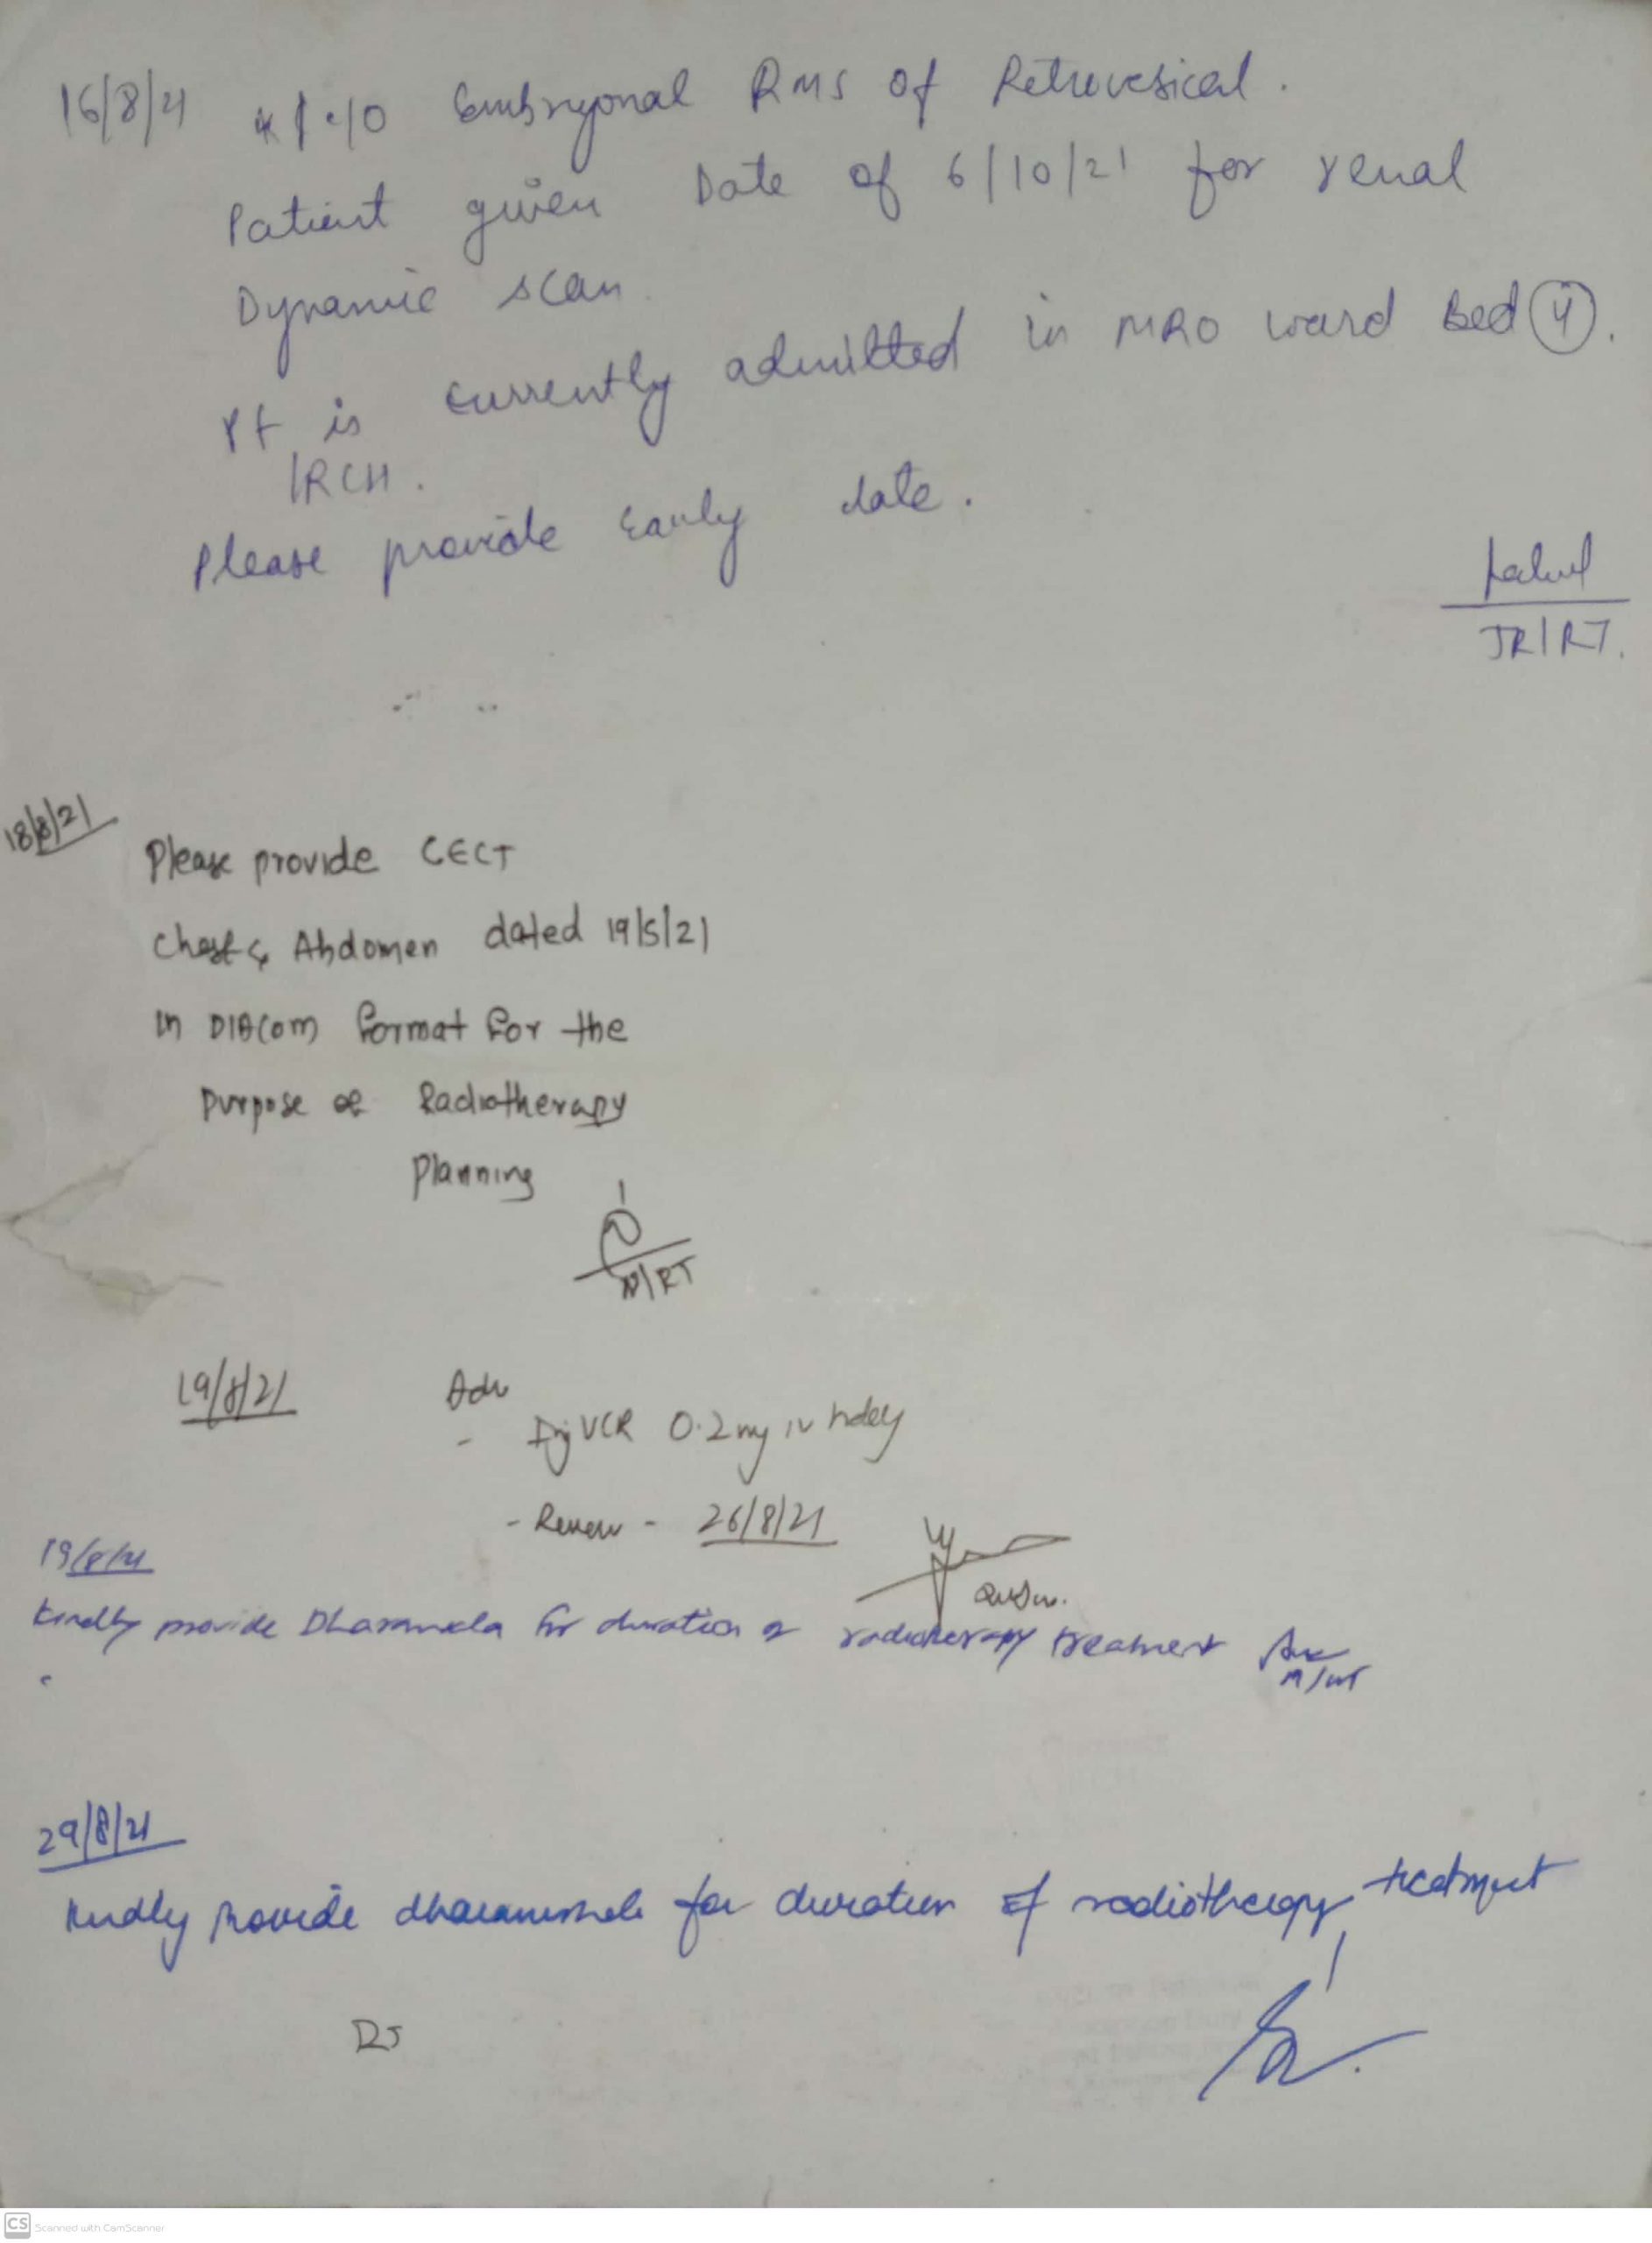 16/8/21 K/C/O Embryonal RMS of Retrovesical.
Patient given Date of 6/10/21 for renal
Dynamic scan.
Pt is currently admitted in MRO ward Bed 4.
IRCH.
Please provide early date.
JR/RT.
18/8/21
Please provide CECT
Chest & Abdomen dated 19/5/21
In DIACOM format for the
Purpose of Radiotherapy
Planning
/RT
19/8/21 Adv
- Inj VCR 0.2mg iv
- Review - 26/8/21
19/8/21
Kindly provide Dharamsala for duration of radiotherapy treatment
29/8/21
Kindly provide dharamshala for duration of radiotherapy treatment
CS Scanned with CamScanner